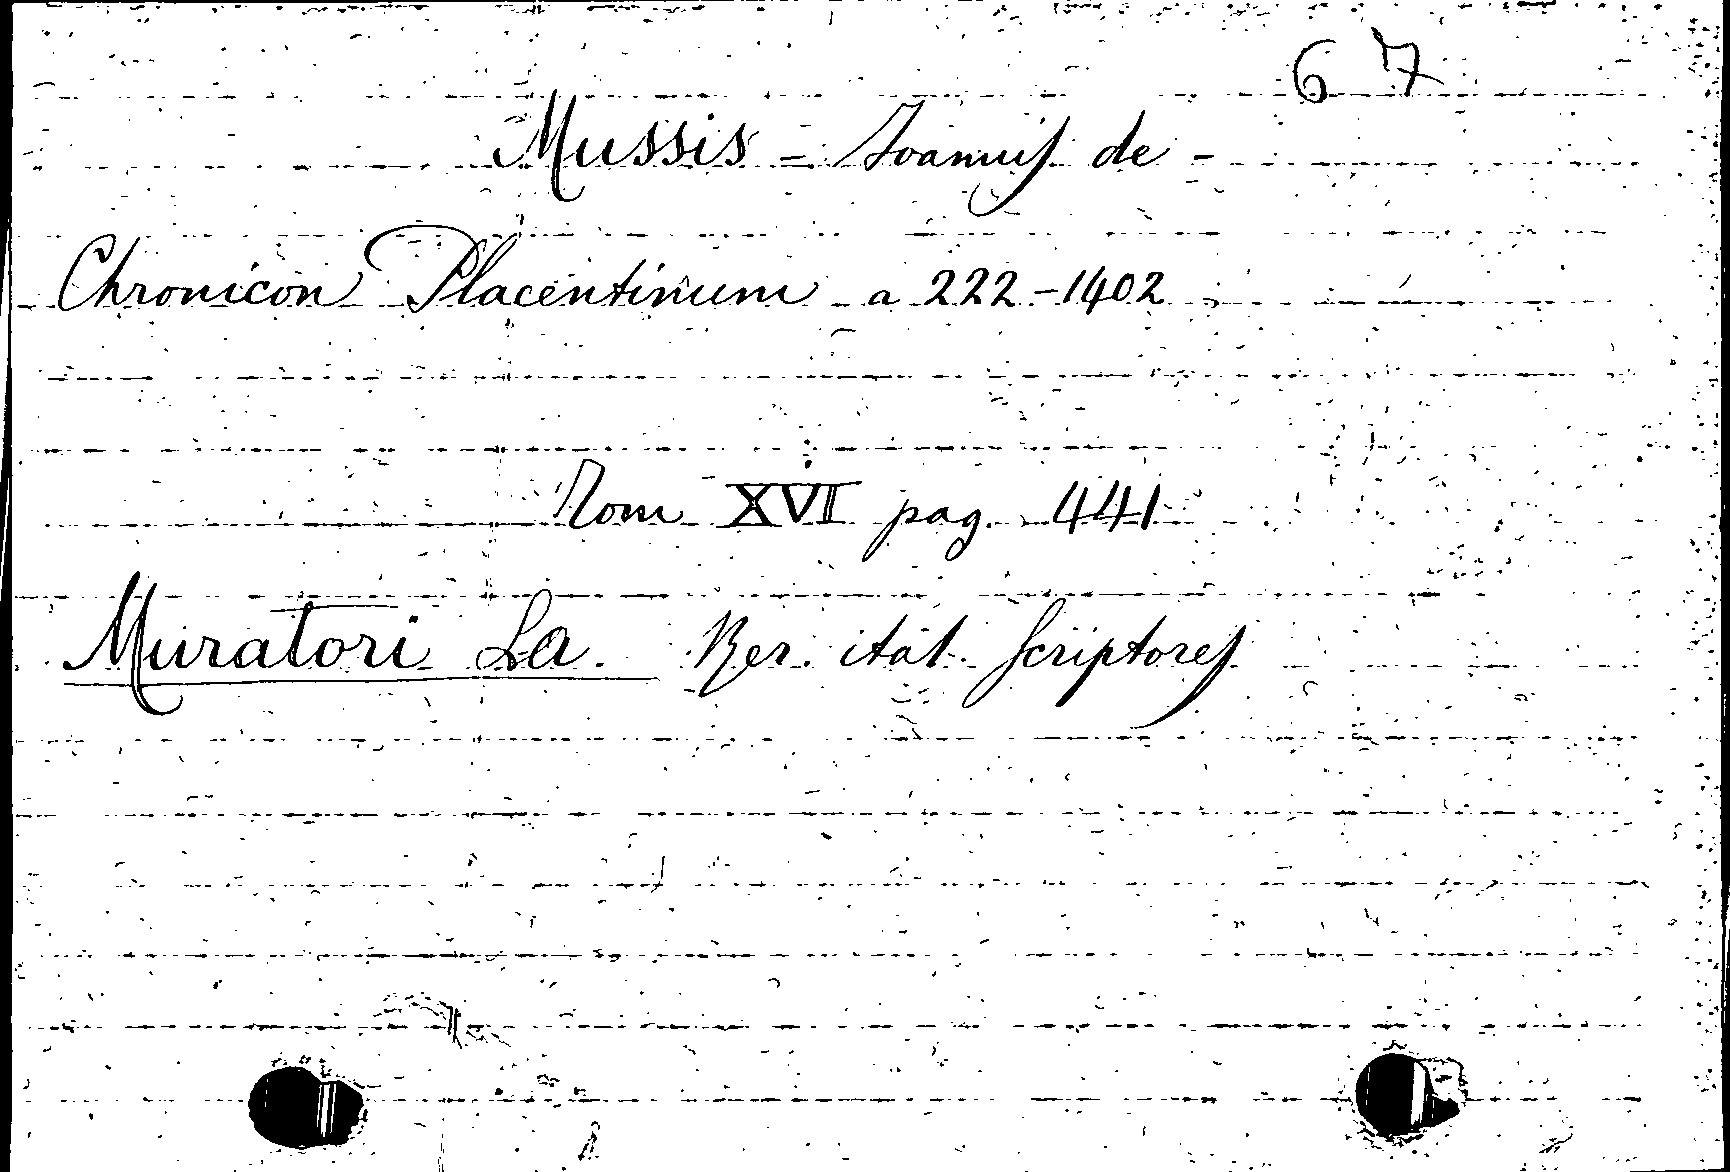 6 7
Mussis - Joannis de -
Chronicon Placentinum a 222-1402
Tom XVI pag. 441
Muratori La. Rer. ital. Scriptores